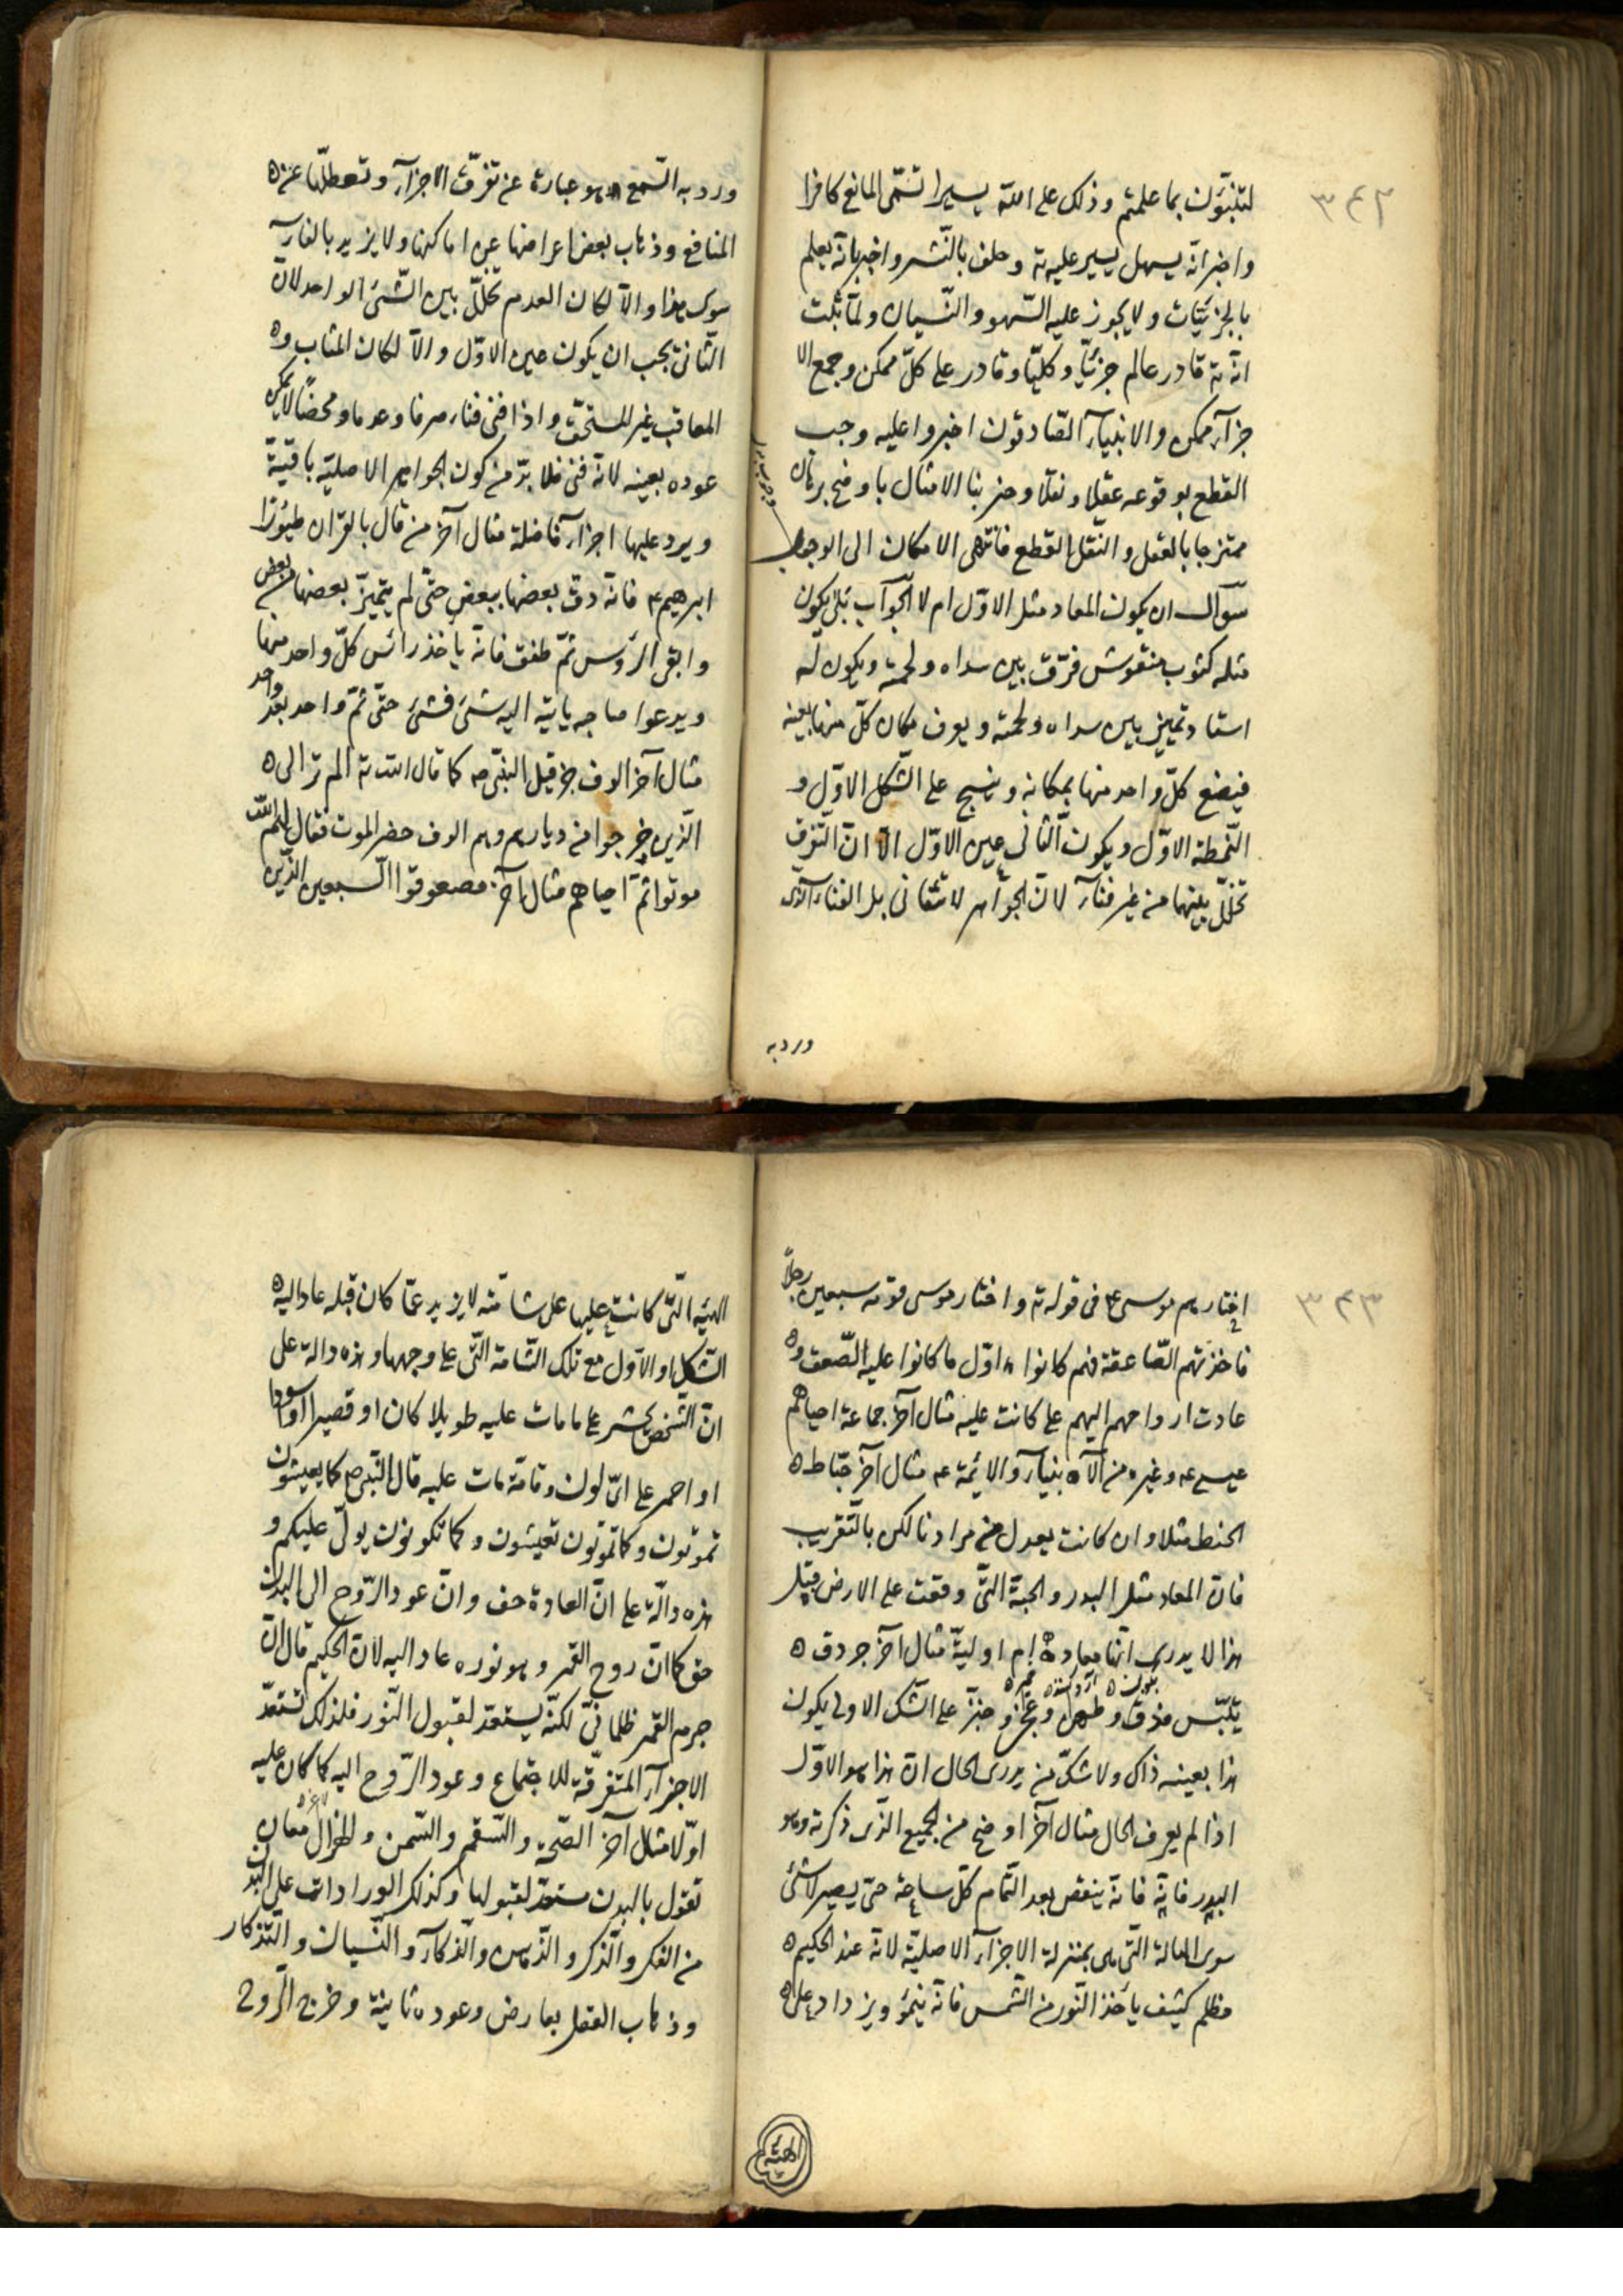 ٣٤٢
لتنبّؤن بما علمتم وذلك على اللّه يسيرا سمّى المانع كافرا
واخبر انّه يسهل يسير عليه تة وحلف بالنّشر واخبر بانّه يعلم
بالجزئيّات ولا يجوز عليه السّهو والنّسيان ولمّا ثبّت
انّه تة قادر عالم جزئيّا وكليّا وقادر على كلّ ممكن وجمع الا
جزآء ممكن والانبيآء الصّادقون اخبروا عليه وجب
القطع بوقوعه عقلا ونقلا وضربنا الامثال باوضح برهان
ممتزجا بالعقل والنّقل القطع فانتهى الامكان الى الوجوب
سوآل ان يكون المعاد مثل الاوّل ام لا الجوآب بلى يكون
مثله كثوب منقوش فرّق بين سداه ولحمته ويكون له
استاد تميّز بين سداه ولحمته ويعرف مكان كلّ منها بعينه
فيضع كلّ واحد منها بمكانه وينسج على الشّكل الاوّل و
النّمطة الاوّل ويكون الثّانى عين الاوّل الّا انّ التّفرّق
تخلّل بينهما من غير فنآء لانّ الجواهر لا تتفانى بل الفنآء الّذى
ورد به
ورد به السّمع هو عبارة عن تفرّق الاجزآء وتعطلّها عن ه
المنافع وذهاب بعض اعراضها عن اماكنها ولا يزيد بالفنآء
سوى هذا والّا لكان العدم تخلّل بين الشّئ الواحد لانّ
الثّانى يجب ان يكون عين الاوّل والّا لكان المثاب و ه
المعاقب غير المستحقّ واذا فنى فنآء صرفا وعدما ومحضا لا يمكن
عوده بعينه لانّه فنى فلا بدّ من كون الجواهر الاصليّة باقيّة
ويرد عليها اجزآء فاضلة مثال آخر من قال بالقرآن طيورا
ابرهيم ع فانّه دقّ بعضها ببعض حتّى لم يتميّز بعضها من بعض
وابقى الرّؤس ثمّ طفق فانّه ياخذ رائس كلّ واحد منها
ويدعوا صاحبه ياتيه اليه شئ فشئ حتّى تمّ واحد بعد واحد
مثال آخر الوف حزقيل النبىّ ص كما قال اللّه تة الم تر الى ه
الّذين خرجوا من ديارهم وهم الوف حذر الموت فقال لهم اللّه
موتوا ثمّ احياهم مثال آخر مصعوقوا السّبعين الّذين
٣٤٣
اختارهم موسى ع فى قوله تة واختار موسى قومه سبعين رجلا
فاخذتهم الصّاعقة فهم كانوا اوّل ما كانوا عليه الصّعق و ه
عادت ارواحهم اليهم على كانت عليه مثال آخر جماعة احياهم
عيسى ع وغيره من الا ه نبيآء والائمّة ع مثال آخر حبّاط ه
الحنط مثلا وان كانت بعدل من مرادنا لكن بالتّقريب
فانّ المعاد مثل البدر والحبّة الّتى وقعت على الارض قبل
هذا لا يدرى انّها معادة ام اوليّة مثال آخر جردق ه
يلبّس فدقّ وطحن وعجن وخبز على الشّكل الاولى يكون
هذا بعينه ذاك ولا شكّ من يدرى الحال انّ هذا هو الاوّل
اذا لم يعرف الحال مثال آخر اوضح من الجميع الّذى ذكرته وهو
البدر فانّه ينقص بعد التّمام كلّ ساعة حتّى يصير لا شئ
سوى الهالة الّتى هى بمنزلة الاجزآء الاصليّة لانّه عند الحكيم ه
مظلم كثيف يأخذ النّور من الشّمس فانّه ينمو ويزداد على ه
الهيئة
الهيئة الّتى كانت عليها على شامته لا يزيد عمّا كان قبله عاد اليه ه
الشّكل الاوّل مع تلك الشّامة الّتى على وجهها وهذه دالّة على
انّ الشّخص يحشر على ما مات عليه طويلا كان او قصيرا او اسودا
او احمر على اىّ لون وقامة مات عليه قال النّبى ص كما يعيشون
تموتون وكما تموتون تعيشون وكما تكونون يولّى عليكم و
هذه دالّة على انّ العادة حق وانّ عود الرّوح الى البدن
حق كما انّ روح القمر وهو نوره عاد اليه لانّ الحكيم قال انّ
جرم القمر ظلمانىّ لكنّه يستعدّ لقبول النّور فلذلك تستعدّ
الاجزآء المتفرّقة للاجتماع وعود الرّوح اليه كما كان عليه
اوّلا مثال آخر الصّحة والسّقم والسّمن والهزال معان
تقول بالبدن مستعدّ لقبولها وكذلك الورادات على البدن
من الفكر والذّكر والذّهن والذّكآء والنّسيان والتّذكار
وذهاب العقل بعارض وعوده ثانية وخرج الرّوح